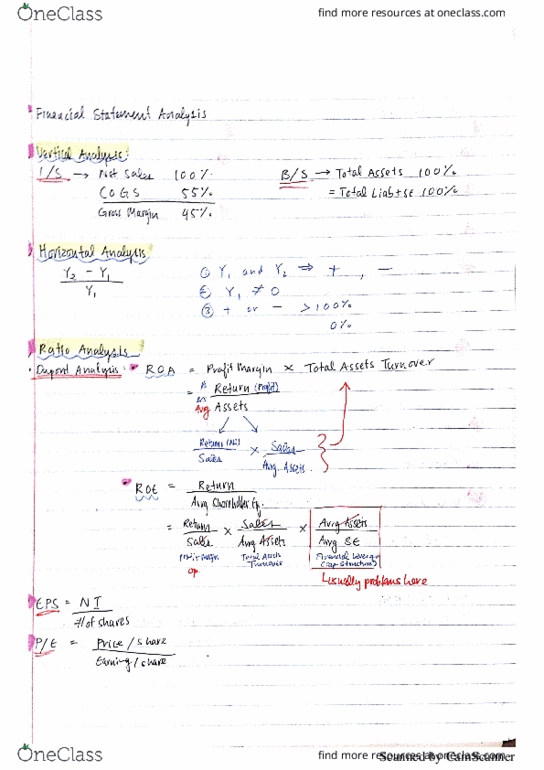 OneClass
find more resources at oneclass.com
Financial Statement Analysis
Vertical Analysis:
I/S → Net Sales 100%
COGS 55%
Gross Margin 45%
B/S → Total Assets 100%
= Total Liab + SE 100%
Horizontal Analysis
Y2 - Y1
Y1
① Y1 and Y2 ⇒ + , -
② Y1 ≠ 0
③ + or - > 100%
0%
Ratio Analysis
• Dupont Analysis: ROA = Profit Margin × Total Assets Turnover
= Return (Profit)
Avg Assets
Return (NI) × Sales
Sales Avg Assets.
ROE = Return
Avrg Shareholder Eq.
= Return × Sales × Avrg Assets
Sales Avrg Assets Avrg SE
Profit Margin Total Assets Turnover Financial Leverage
(Cap. Structure)
op.
↳ usually problems here
EPS = NI
# of shares
P/E = Price / share
Earning / share
OneClass
find more resources at oneclass.com
Scanned by CamScanner